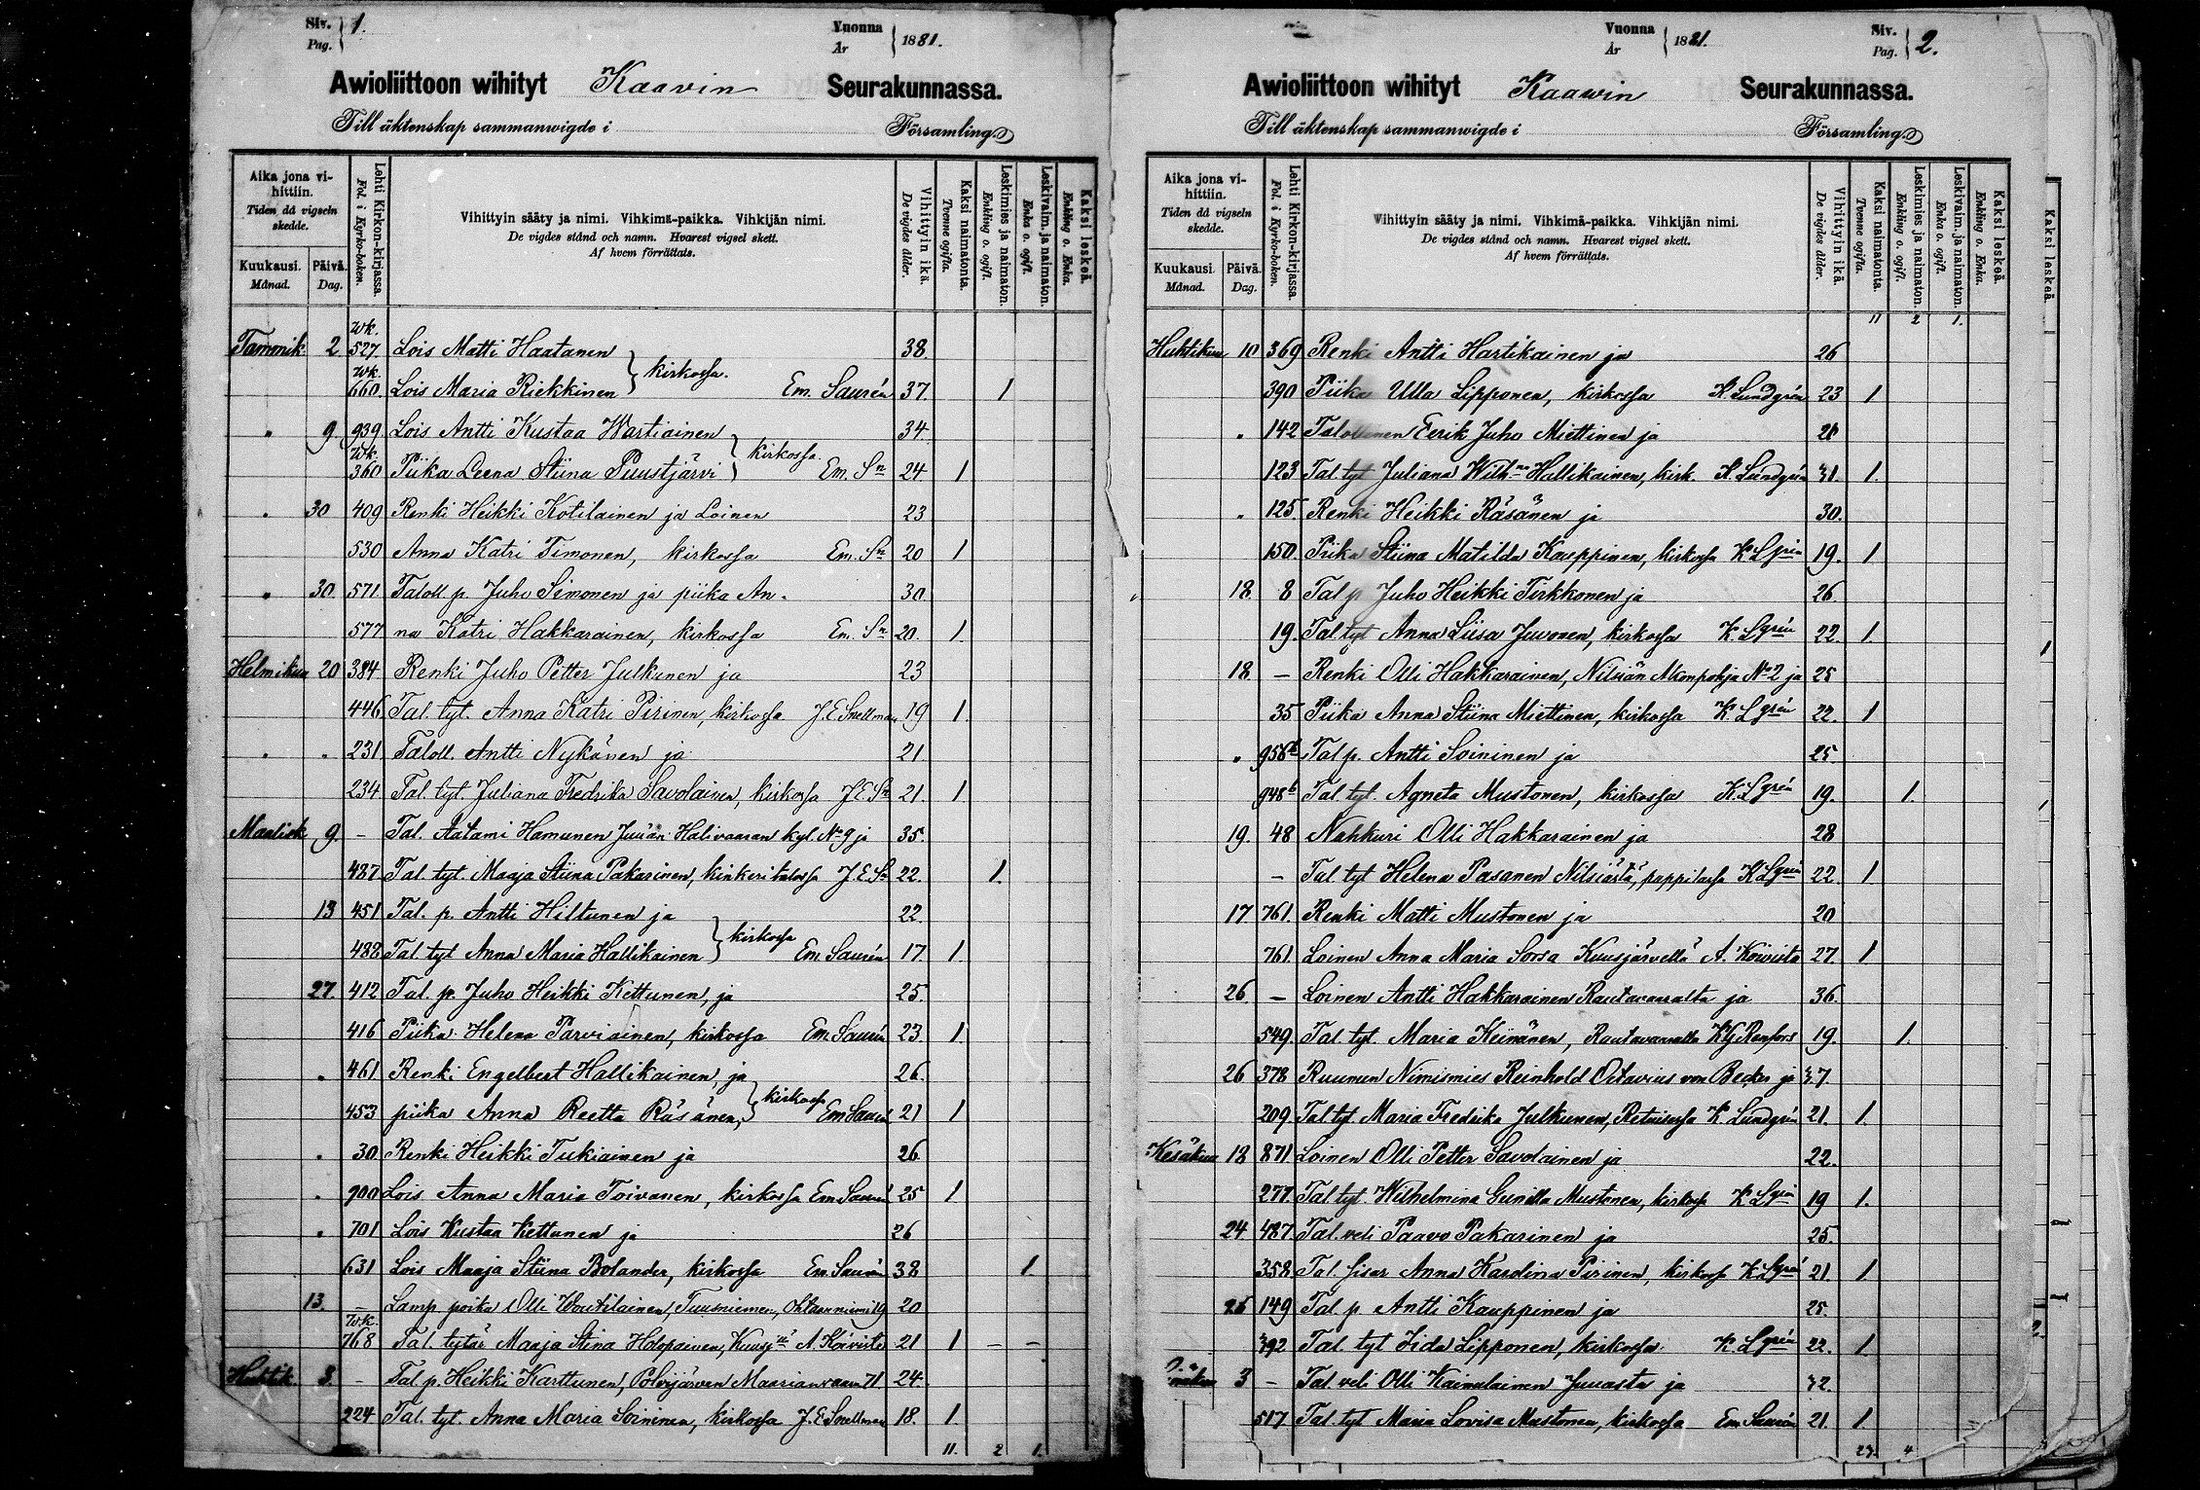 Siv. Pag. 1.
Vuonna År 1881.
Awioliittoon wihityt Kaavin Seurakunnassa.
Till äktenskap sammanwigde i Församling.
Aika jona vihittiin. Tiden då vigseln skedde.
Kuukausi. Månad.
Päivä. Dag.
Lehti Kirkon-kirjassa. Fol. i Kyrko-boken.
Vihittyin sääty ja nimi. Vihkimä-paikka. Vihkijän nimi.
De vigdes stånd och namn. Hvarest vigsel skett.
Af hvem förrättats.
Vihittyin ikä. De vigdes ålder.
Kaksi naimatonta. Tvenne ogifta.
Leskimies ja naimaton. Enkling o. ogift.
Leskivaim. ja naimaton. Enka o. ogift.
Kaksi leskeä. Enkling o. Enka.
Tammik. 2 Wk. 527. Lois Matti Haatanen 38.
Wk. 660. Lois Maria Riekkinen } kirkossa. Em. Saurén 37. 1
" 9 939 Lois Antti Kustaa Wartiainen 34
Wk. 360 Piika Leena Stiina Puustjärvi } kirkossa. Em. Sn 24 1
" 30 409 Renki Heikki Kotilainen ja Loinen 23
530 Anna Katri Timonen, kirkossa Em. Sn 20 1
" 30. 571. Taloll p. Juho Simonen ja piika An- 30
577 na Katri Hakkarainen, kirkossa Em. Sn 20. 1
Helmikuu 20 384 Renki Juho Petter Julkunen ja 23
446 Tal. tyt. Anna Katri Pirinen, kirkossa J.E. Snellman 19 1.
" " 231 Taloll. Antti Nykänen ja 21
234 Tal. tyt. Juliana Fredrika Savolainen, kirkossa J.E.Sn 21. 1
Maalisk 9. - Tal. Aatami Hamunen Juuan Halivaaran kyl. No 9 ja 35.
487 Tal. tyt. Maaja Stiina Pakarinen, kinkeritalossa J.E.Sn 22. 1.
13 451 Tal. p. Antti Hiltunen ja 22.
482 Tal tyt Anna Maria Hallikainen } kirkossa Em. Saurén 17. 1.
27. 412 Tal. p. Juho Heikki Kettunen, ja 25.
416 Piika Helena Parviainen, kirkossa Em. Saurén 23. 1
" 461 Renki Engelbert Hallikainen, ja 26.
453 piika Anna Reetta Räsänen, } kirkossa Em Saurén 21 1
" 30 Renki Heikki Tukiainen ja 26
" 900 Lois Anna Maria Toivanen, kirkossa Em Saurén 25 1
" 701 Lois Kustaa Kettunen ja 26
631 Lois Maaja Stiina Bolander, kirkossa Em. Saurén 38 1.
13. - Lamp. poika Olli Woutilainen, Tuusniemen, 20
Wk. 768 Tal. tytär Maaja Stina Holopainen, A. Koivisto 21 1 - -
Huhtik. 3. - Tal. p. Heikki Karttunen, Polvijärven Maarianvaara 71 24.
224 Tal. tyt. Anna Maria Soininen, kirkossa J.E. Snellman 18. 1.
11. 2 1.
Vuonna År 1881.
Siv. Pag. 2.
Awioliittoon wihityt Kaawin Seurakunnassa.
Till äktenskap sammanwigde i Församling.
Aika jona vihittiin. Tiden då vigseln skedde.
Kuukausi. Månad.
Päivä. Dag.
Lehti Kirkon-kirjassa. Fol. i Kyrko-boken.
Vihittyin sääty ja nimi. Vihkimä-paikka. Vihkijän nimi.
De vigdes stånd och namn. Hvarest vigsel skett.
Af hvem förrättats.
Vihittyin ikä. De vigdes ålder.
Kaksi naimatonta. Tvenne ogifta.
Leskimies ja naimaton. Enkling o. ogift.
Leskivaim. ja naimaton. Enka o. ogift.
Kaksi leskeä. Enkling o. Enka.
Kaksi leskeä.
11 2 1.
Huhtikuu 10 369 Renki Antti Hartikainen ja 26
390 Piika Ulla Lipponen, kirkossa K. Lundgrén 23 1
" 142 Talollinen Eerik Juho Miettinen ja
123 Tal tyt Juliana Wilhna Hallikainen, kirk. K. Lundgrén 1.
" 125. Renki Heikki Räsänen ja 30.
150. Piika Stiina Matilda Kauppinen, kirkossa K. Lgrén 19. 1
18. 8 Tal p. Juho Heikki Tirkkonen ja 26.
19. Tal. tyt Anna Liisa Juvonen, kirkossa K. Lgrén 22. 1.
18. - Renki Olli Hakkarainen, Nilsiän No 2 ja 25
35 Piika Anna Stiina Miettinen, kirkossa K. Lgrén 22. 1
" 958b Tal p. Antti Soininen ja 25.
948b Tal. tyt. Agneta Mustonen, kirkossa K. Lgrén 19. 1.
19. 48 Nahkuri Olli Hakkarainen ja 28
- Tal tyt Helena Pasanen Nilsiästä, pappilassa K Lgrén 22. 1
17 761. Renki Matti Mustonen ja 20
761. Loinen Anna Maria Sorsa Kuusjärvellä A. Koivisto 27. 1.
26. - Loinen Antti Hakkarainen Rautavaaralta ja 36.
549. Tal. tyt. Maria Keinänen, Rautavaaralla Renfors 19. 1.
26 378 Ruunun Nimismies Reinhold Octavius von Becker ja 37.
209 Tal tyt. Maria Fredrika Julkunen, K. Lundgrén 21. 1.
Kesäkuu 18 871 Loinen Olli Petter Savolainen ja 22.
277. Tal tyt. Wilhelmina Gunilla Mustonen, kirkossa K Lgrén 19 1.
24. 487. Tal. veli Paavo Pakarinen ja 25.
358. Tal sisar Anna Kardina Pirinen, kirkossa K Lgrén 21. 1
25 149 Tal p. Antti Kauppinen ja 25.
392. Tal. tyt Iida Lipponen, kirkossa K. Lgrén 22. 1.
3 - Tal. veli Olli Kainulainen Juuasta ja 32.
517. Tal. tyt Maria Lovisa Mustonen, kirkossa Em. Saurén 21. 1.
4